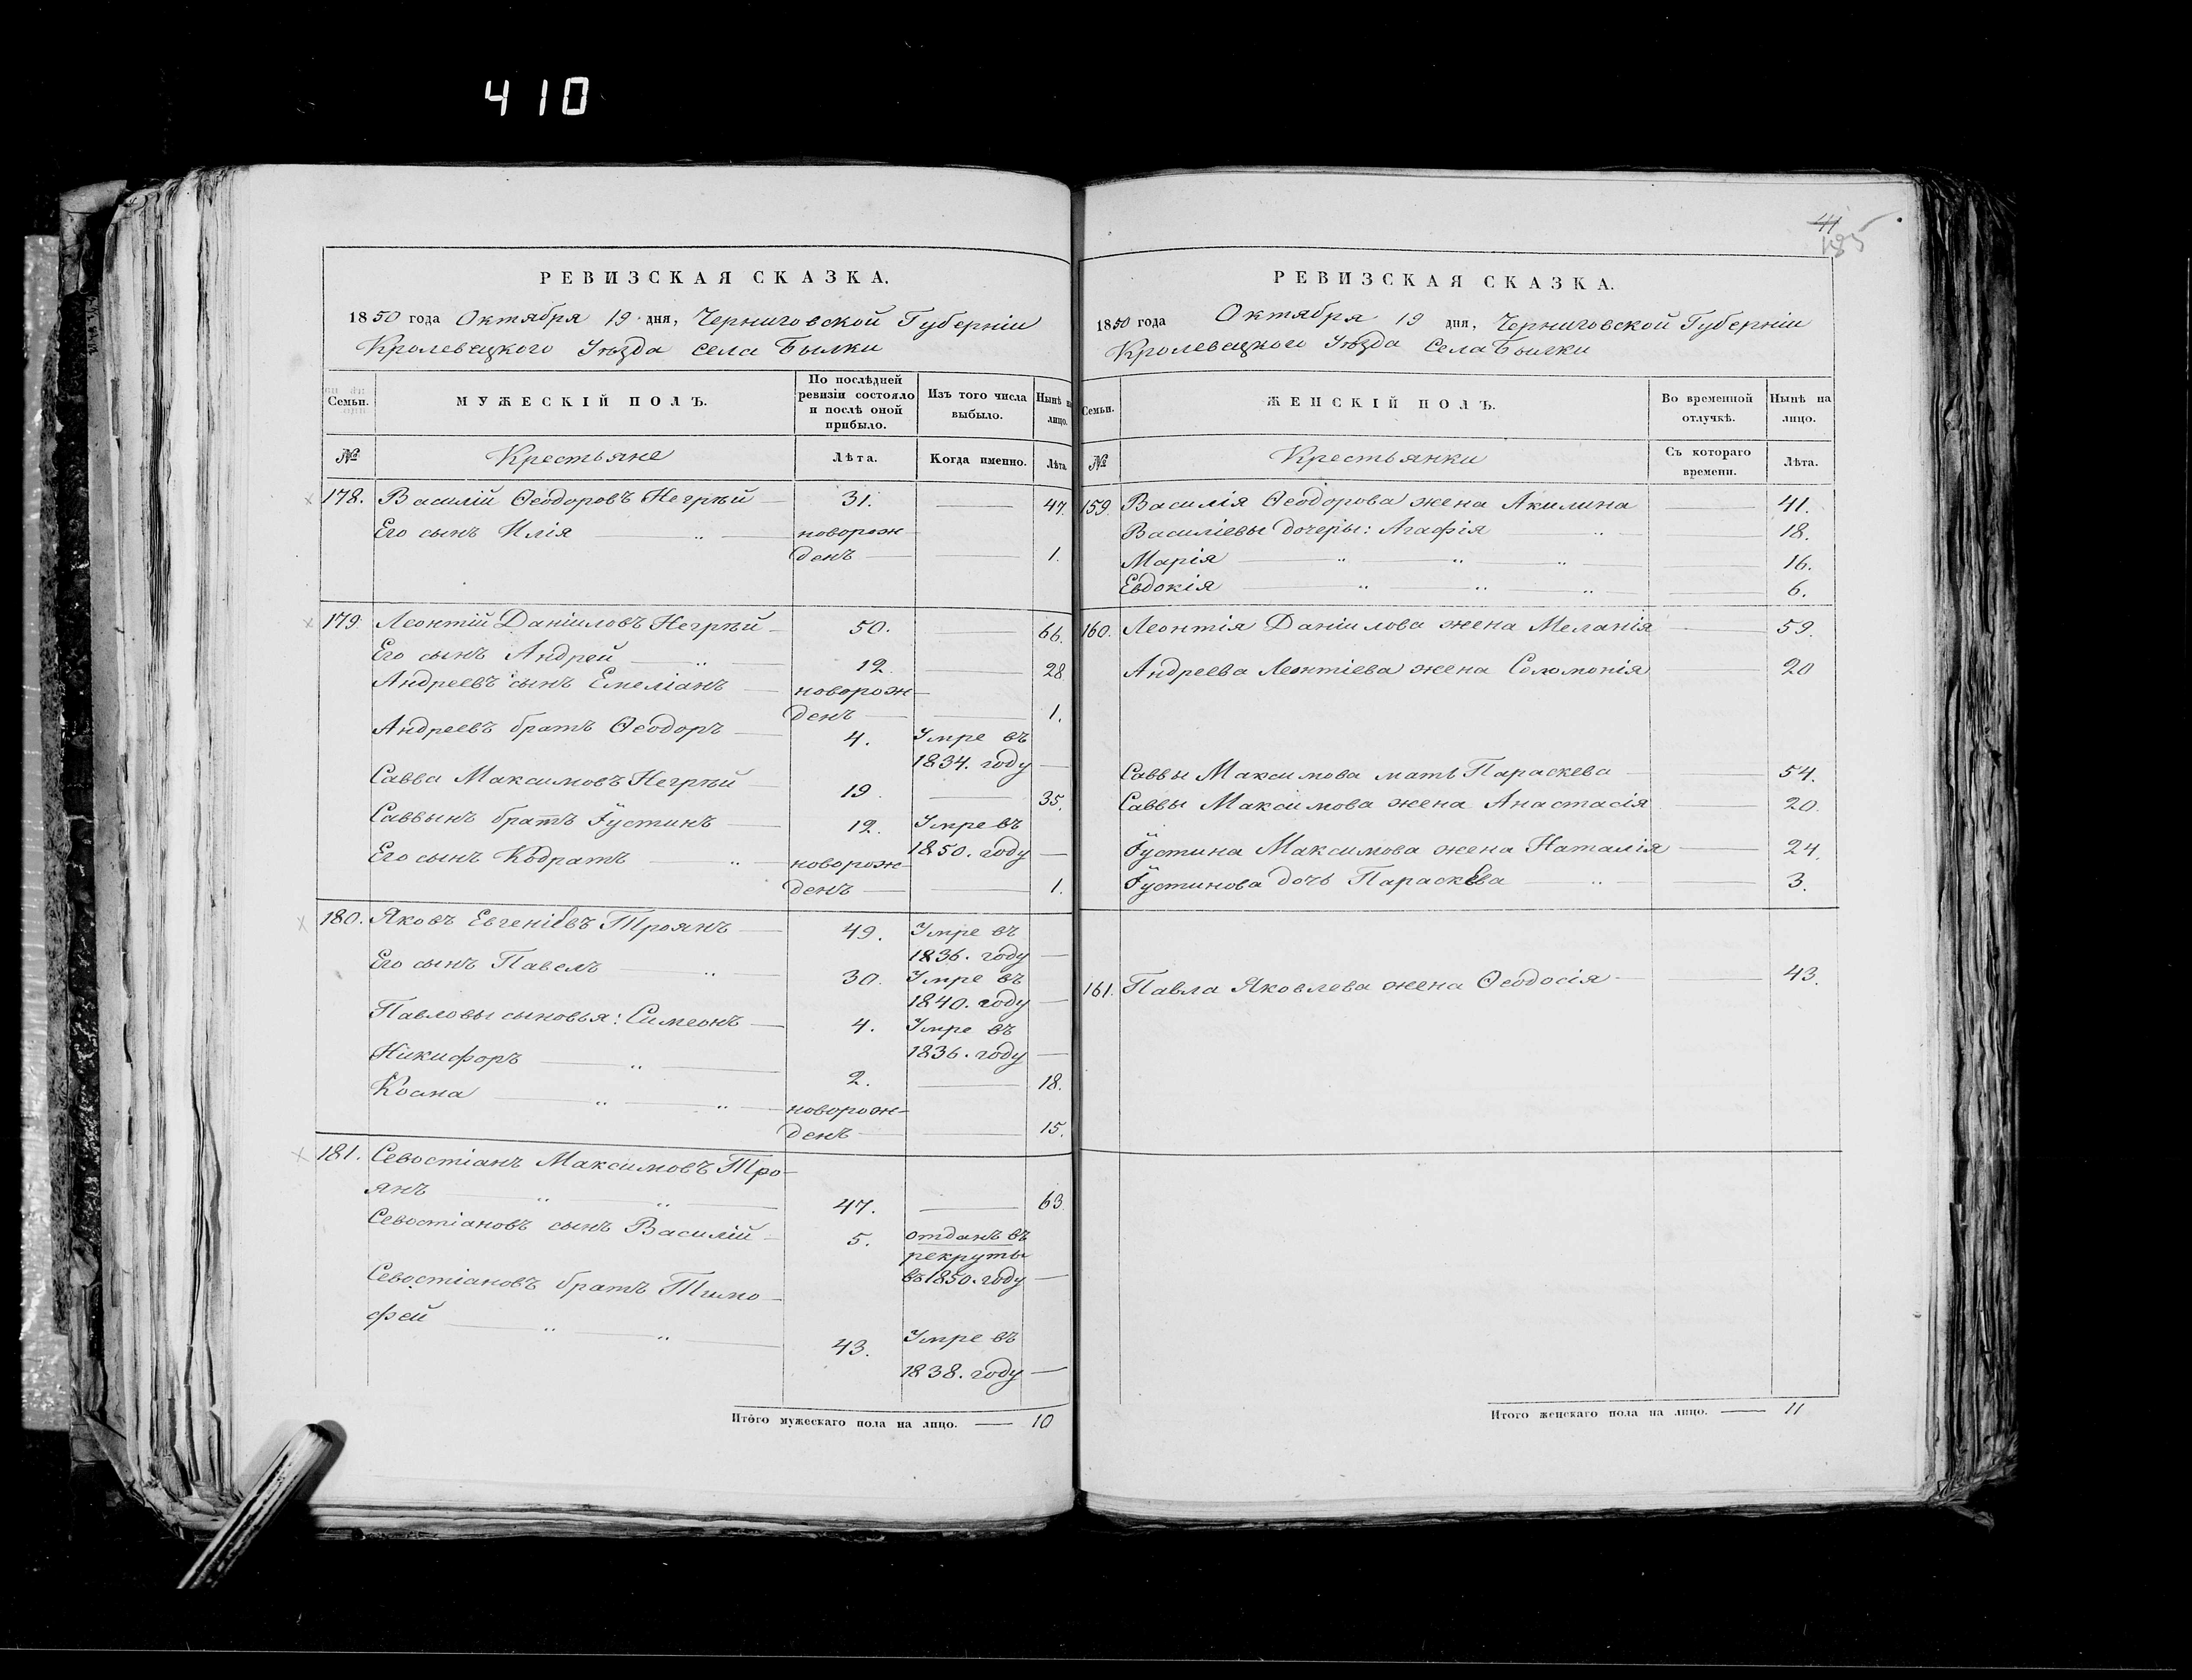 410
РЕВИЗСКАЯ СКАЗКА.
1850 года Октября 19 дня, Черниговской Губерніи
Кролевецкого Уѣзда села Былки
Семьи.
МУЖЕСКІЙ ПОЛЪ.
По послѣдней ревизіи состояло и послѣ оной прибыло.
Изъ того числа выбыло.
Нынѣ на лицо.
№ Крестьяне Лѣта. Когда именно. Лѣта
178. Василій Ѳеодоровъ Негрѣй — 31. — 47.
Его сынъ Илія — „ — новорож
денъ — — 1.
179. Леонтій Даніиловъ Негрѣй — 50. — 66.
Его сынъ Андрей — „ — 12. — 28.
Андреевъ сынъ Емеліанъ — новорож—
денъ — — 1.
Андреевъ братъ Ѳеодоръ — 4. Умре въ
1834. году —
Савва Максимовъ Негрѣй — 19. — 35.
Саввынъ братъ Іустинъ — 12. Умре въ
1850. году —
Его сынъ Кодратъ — „ — новорож—
денъ — — 1.
180. Яковъ Евгеніевъ Троянъ — 49. Умре въ
1836. году —
Его сынъ Павелъ — „ — 30. Умре въ
1840. году —
Павловы сыновья: Симеонъ — 4. Умре въ
1836. году —
Никифоръ — „ — 2. — 18.
Косма — „ — „ — новорож—
денъ — — 15.
181. Севостіанъ Максимовъ Тро—
янъ — „ — „ — 47. — 63.
Севостіановъ сынъ Василій — 5. отданъ въ
рекруты
въ 1850. году —
Севостіановъ братъ Тимо—
фей — „ — „ — 43. Умре въ
1838. году —
Итого мужескаго пола на лицо. — 10
41
185
РЕВИЗСКАЯ СКАЗКА.
1850 года Октября 19 дня, Черниговской Губерніи
Кролевецкого Уѣзда Села Былки
Семьи.
ЖЕНСКІЙ ПОЛЪ.
Во временной отлучкѣ.
Нынѣ на лицо.
№ Крестьянки Съ котораго времени. Лѣта.
159. Василія Ѳеодорова жена Акилина — 41.
Василіевы дочери: Агафія „ — — 18.
Марія — „ — „ — „ — — 16.
Евдокія — „ — „ — „ — — 6.
160. Леонтія Даніилова жена Меланія — 59.
Андреева Леонтіева жена Соломонія 20
Саввы Максимова мать Параскева — — 54.
Саввы Максимова жена Анастасія — 20.
Іустина Максимова жена Наталія — 24.
Іустинова дочь Параскева „ — — 3.
161. Павла Яковлева жена Ѳеодосія — — 43.
Итого женскаго пола на лицо. — 11